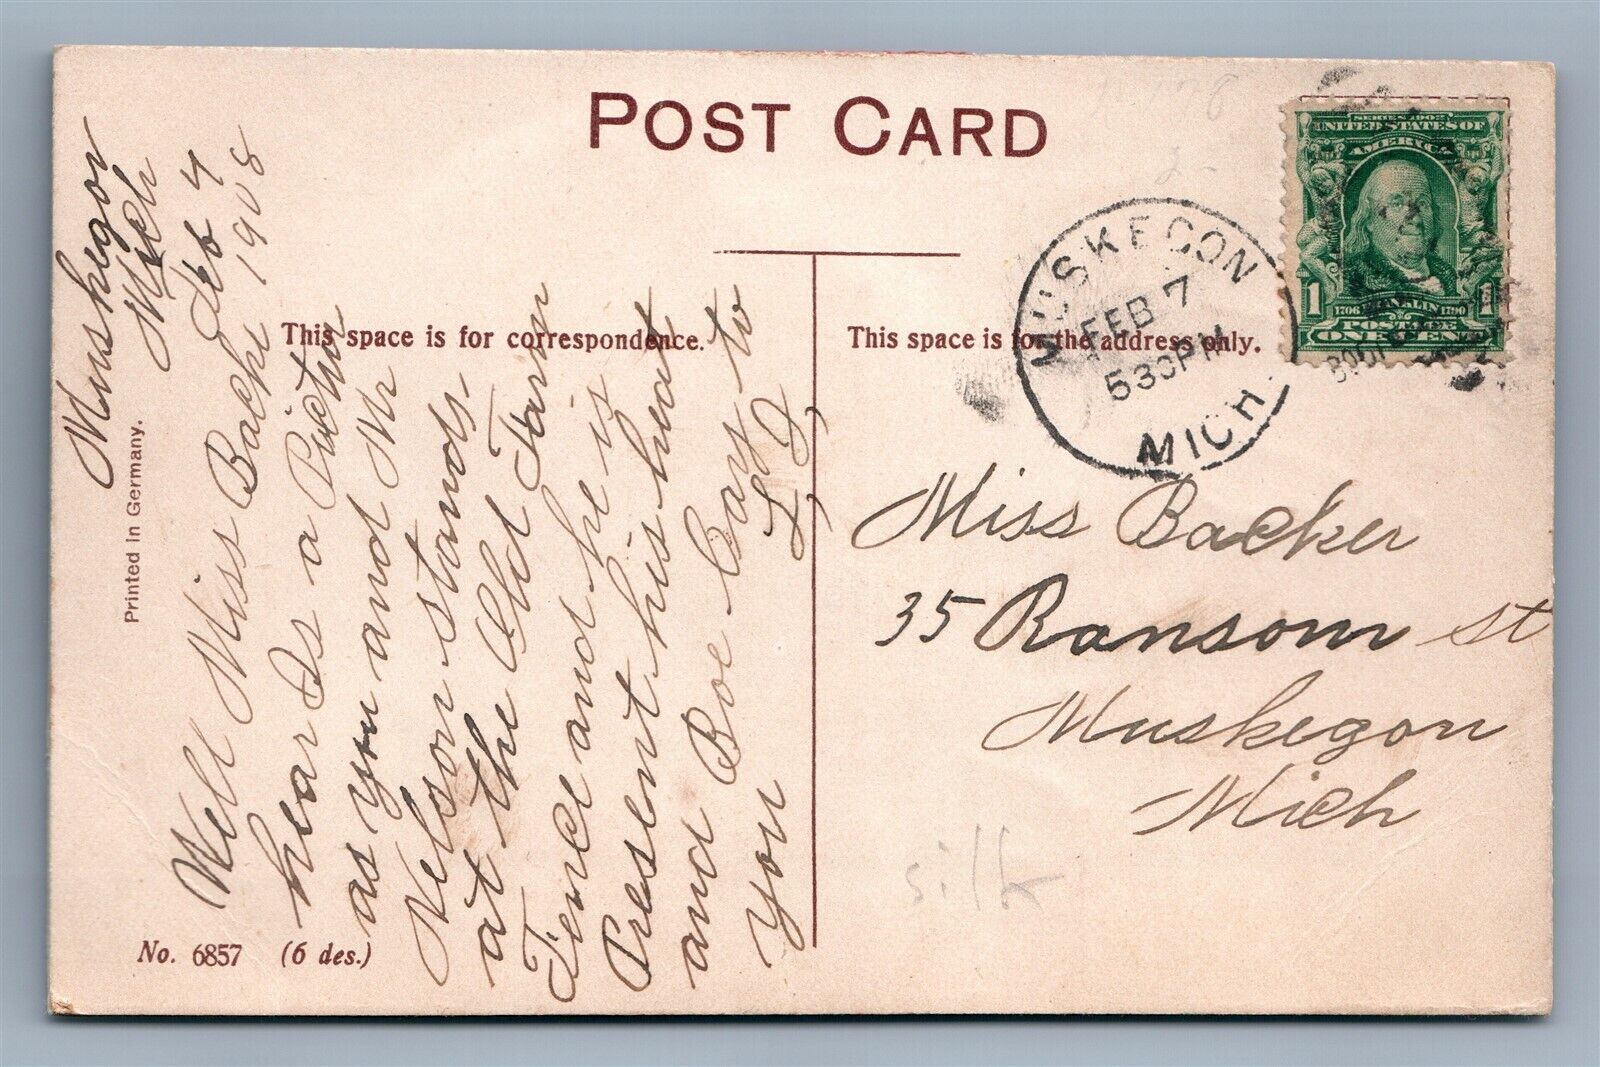 POST CARD
Muskegon
Mich
Feb 7
1908
Well Miss Backe
hear Is a Pictur
as you and Mr
Nelson stands.
at the Old Farm
Fence and he is
Present his heart
and Boe Cary to
you
This space is for correspondence.
This space is for the address only.
Printed in Germany.
No. 6857 (6 des.)
MUSKEGON
FEB 7
530PM
MICH.
SERIES 1902
UNITED STATES OF
AMERICA
1 FRANKLIN 1
1706 1790
POSTAGE
ONE CENT
Miss Backer
35 Ransom st
Muskegon
Mich
silk